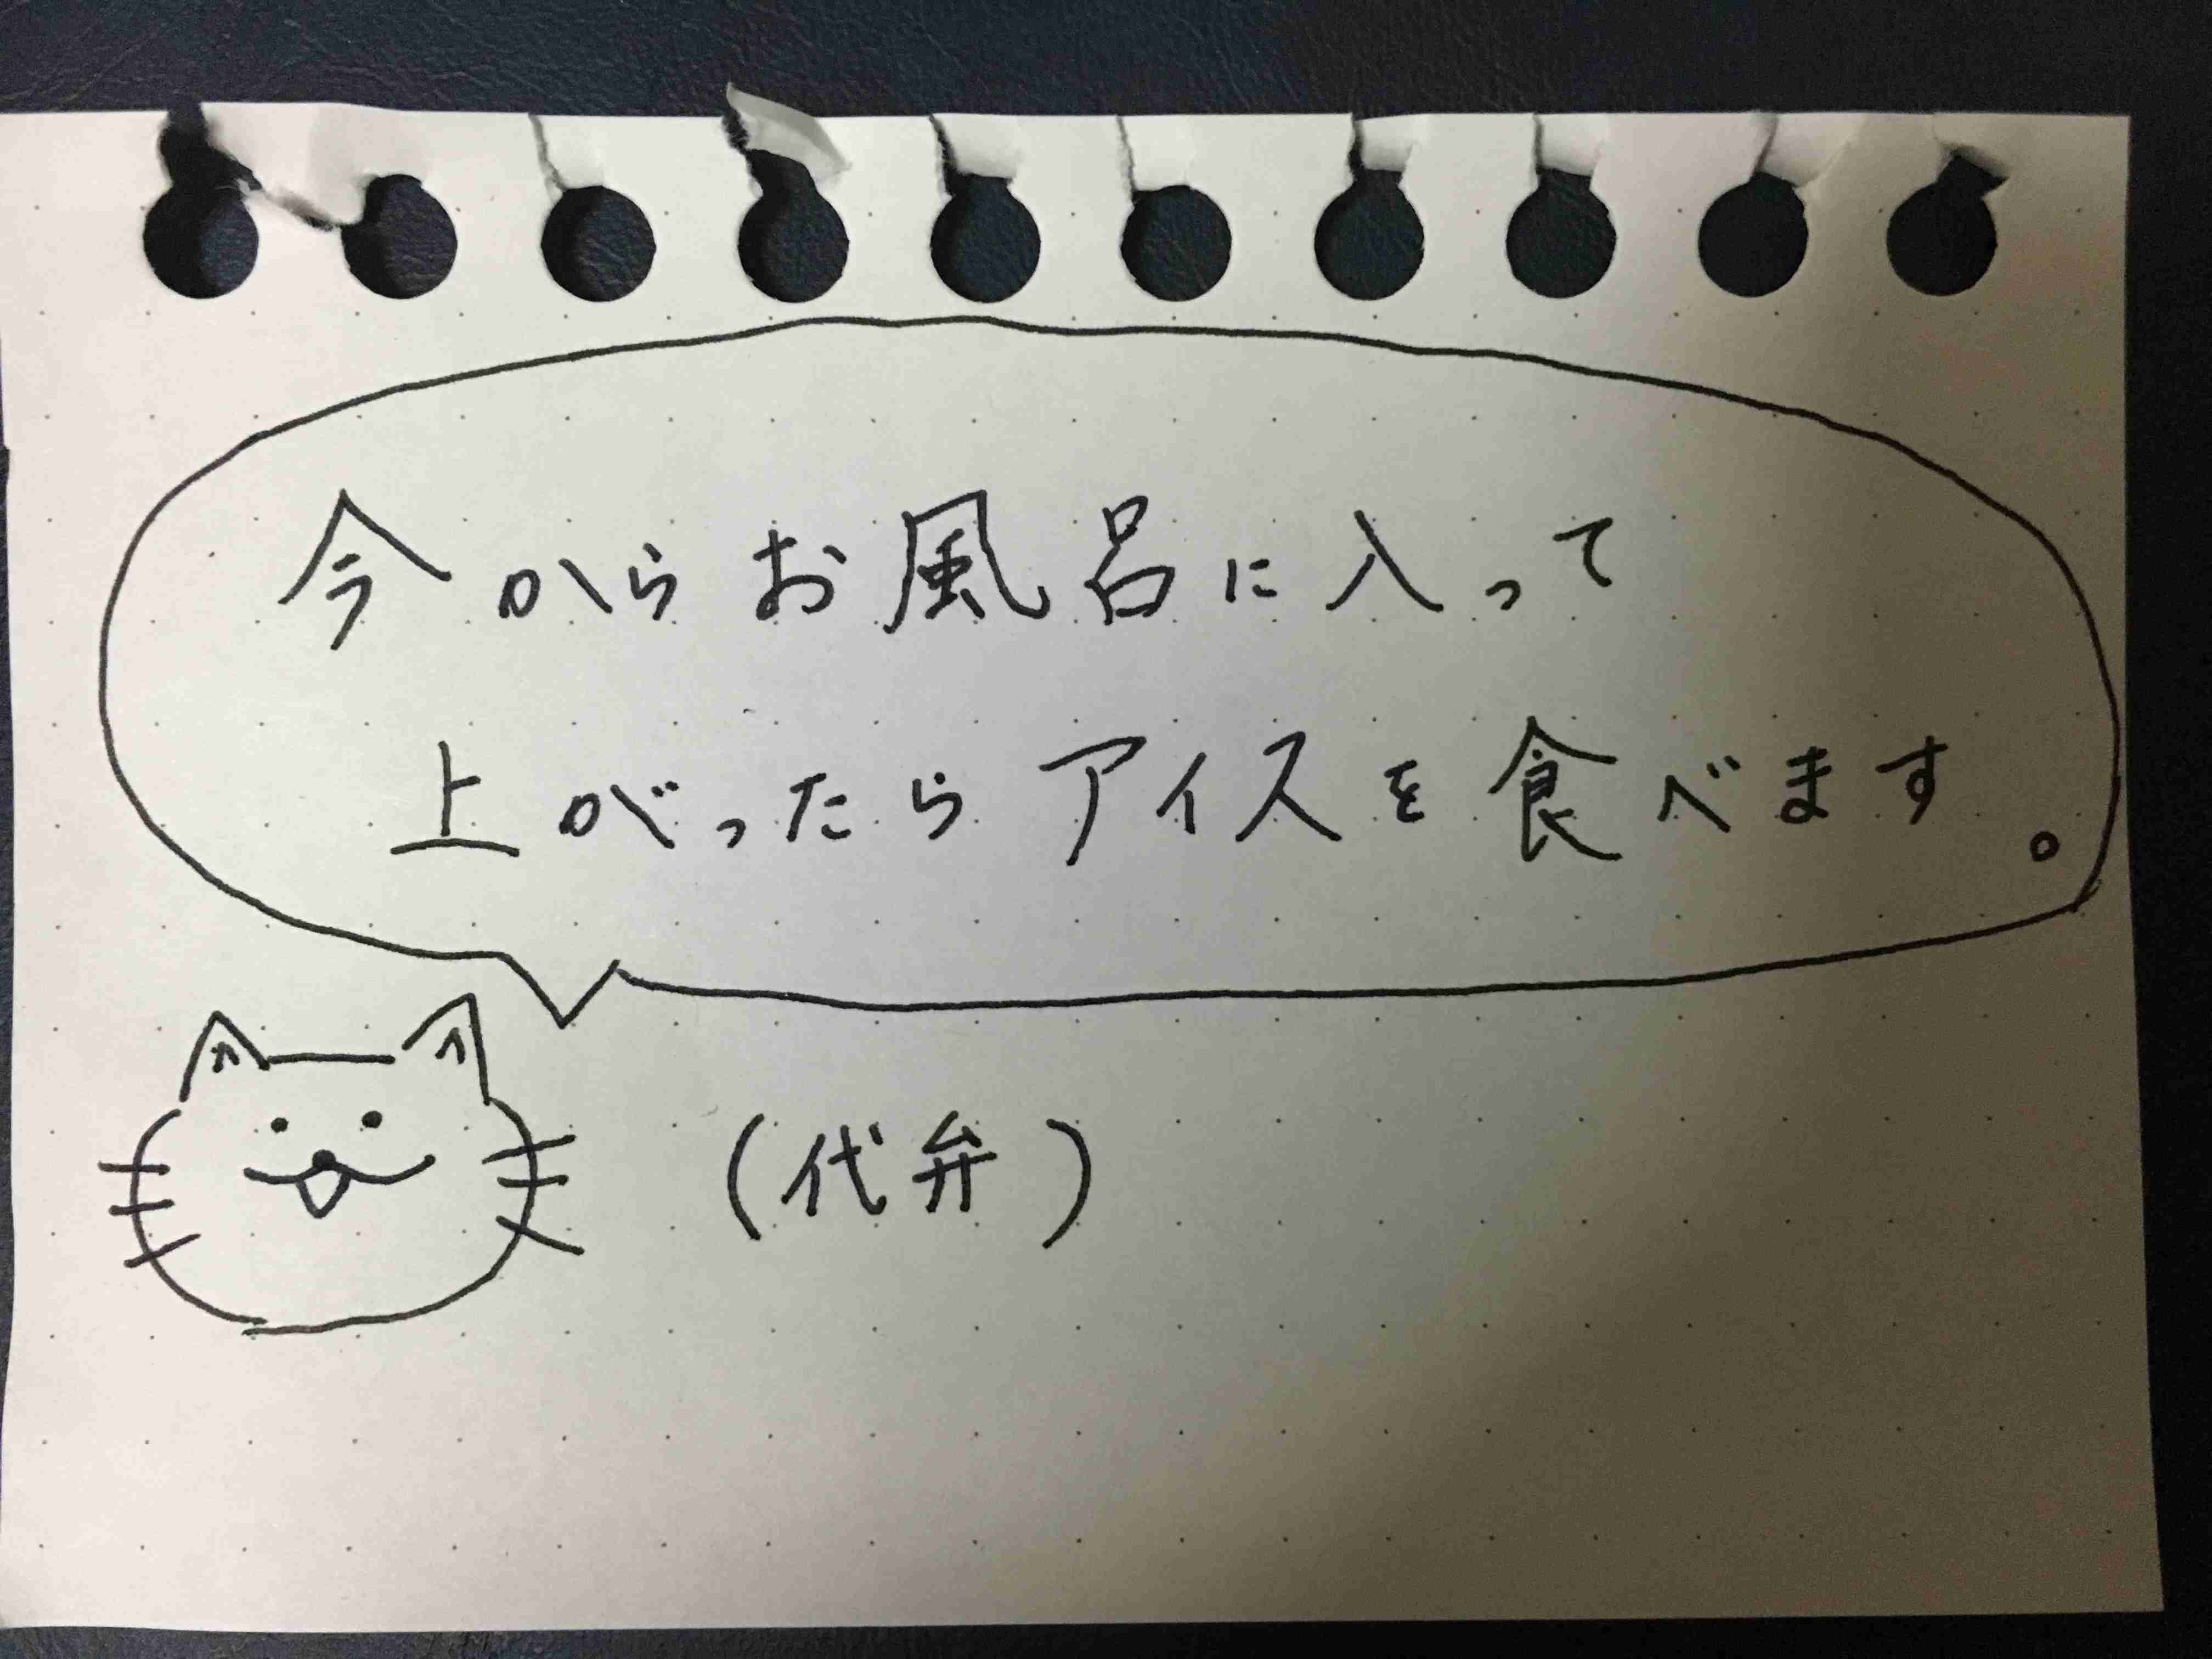 今からお風呂に入って
上がったらアイスを食べます。
(代弁)